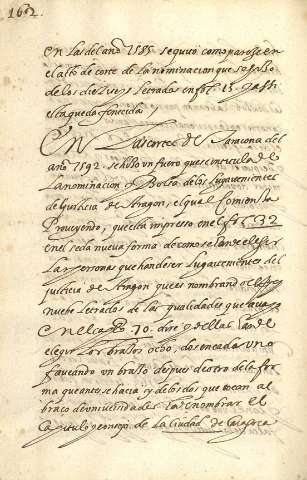 1602.
en las del año 1585 seguió como parece en
el acto de corte de la nominacion que se hallo
de los diez y seys Letrados en fol. 15. y assi
esta queda fenecida y
En Las cortes de Taraçona del
año 1592 se hizo un fuero que se intitula de
La nominacion y Bolsa de los Lugartenientes
del Justicia de Aragon, el qual Comiença
Proveyendo, questa impresso en el fol. 232
en el se da nueva forma de como se an de elegir
Las personas que han de ser Lugartenientes del
Justicia de Aragon que es nombrando el Rey
nueve Letrados de las qualidades que
en el cap. 10. dire y dellas han de
elegir Los braços ocho, dos en cada uno
sacando un braço despues de otro de la for
ma que antes se hacia y de los dos que tocan al
braço de universidades ha de nombrar el
Capitulo y consejo de La Ciudad de Caragoça